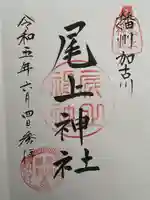 播州加古川
尾上神社
令和五年六月四日奉拝